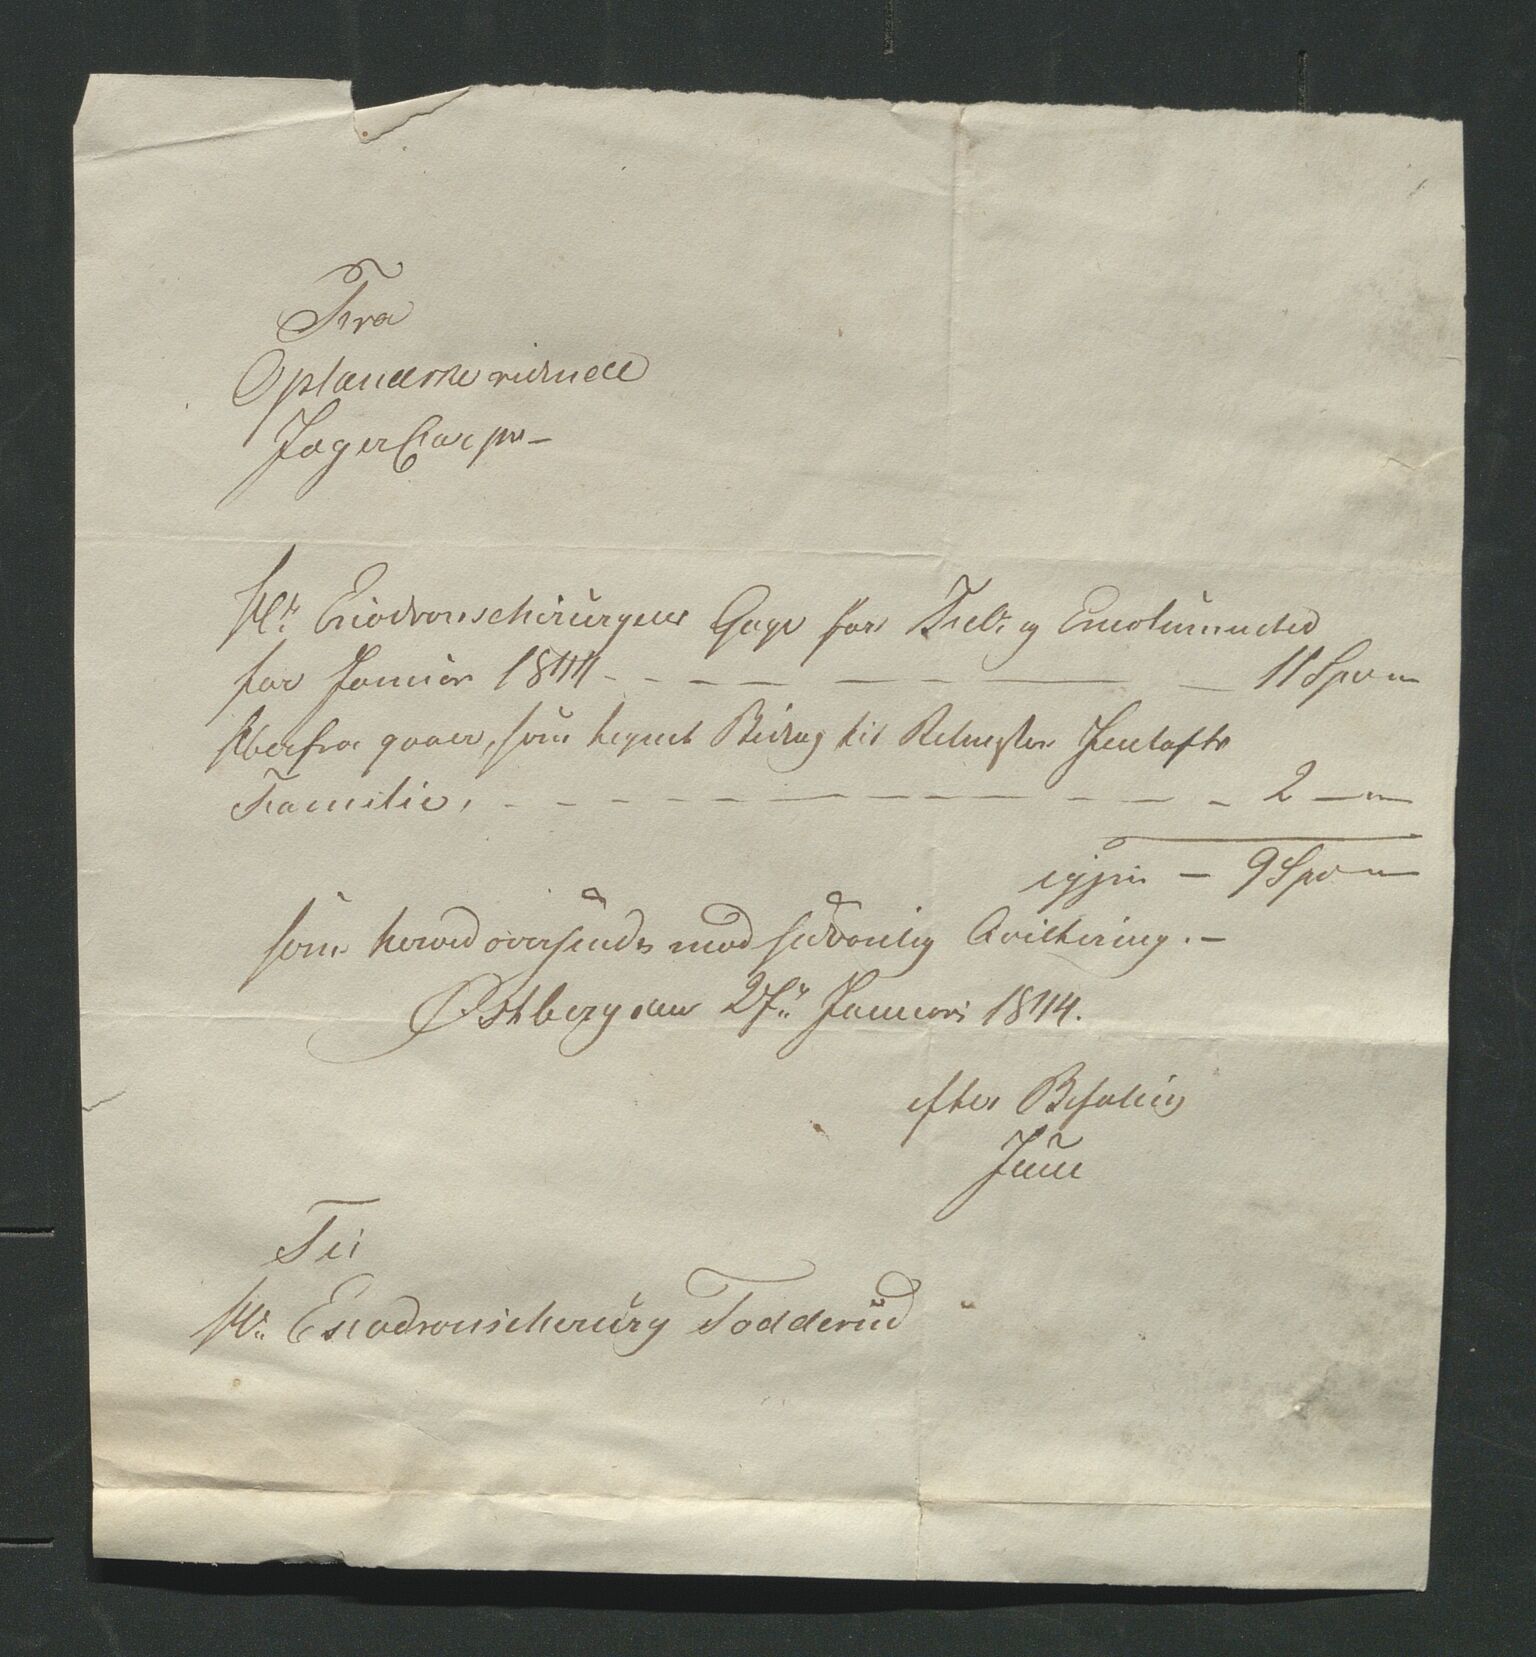 Fra
Oplandske ridende
JægerCorps –
Hr. Escadronschirurgens Gage for Telt og Emolumenter
for Januar 1844 – – – – – – – 11 Spd –
Herfra gaaer, som tegnet Bidrag til Ritmester
Familie, – – – – – – – – – – 2 –
igjen – 9 Spd –
som herved oversendes mod sædvanlig Qvittering. –
Østberg den 27de Januar 1844.
efter Befaling
Juul
Til
Hr. Escadronschirurg Todderud